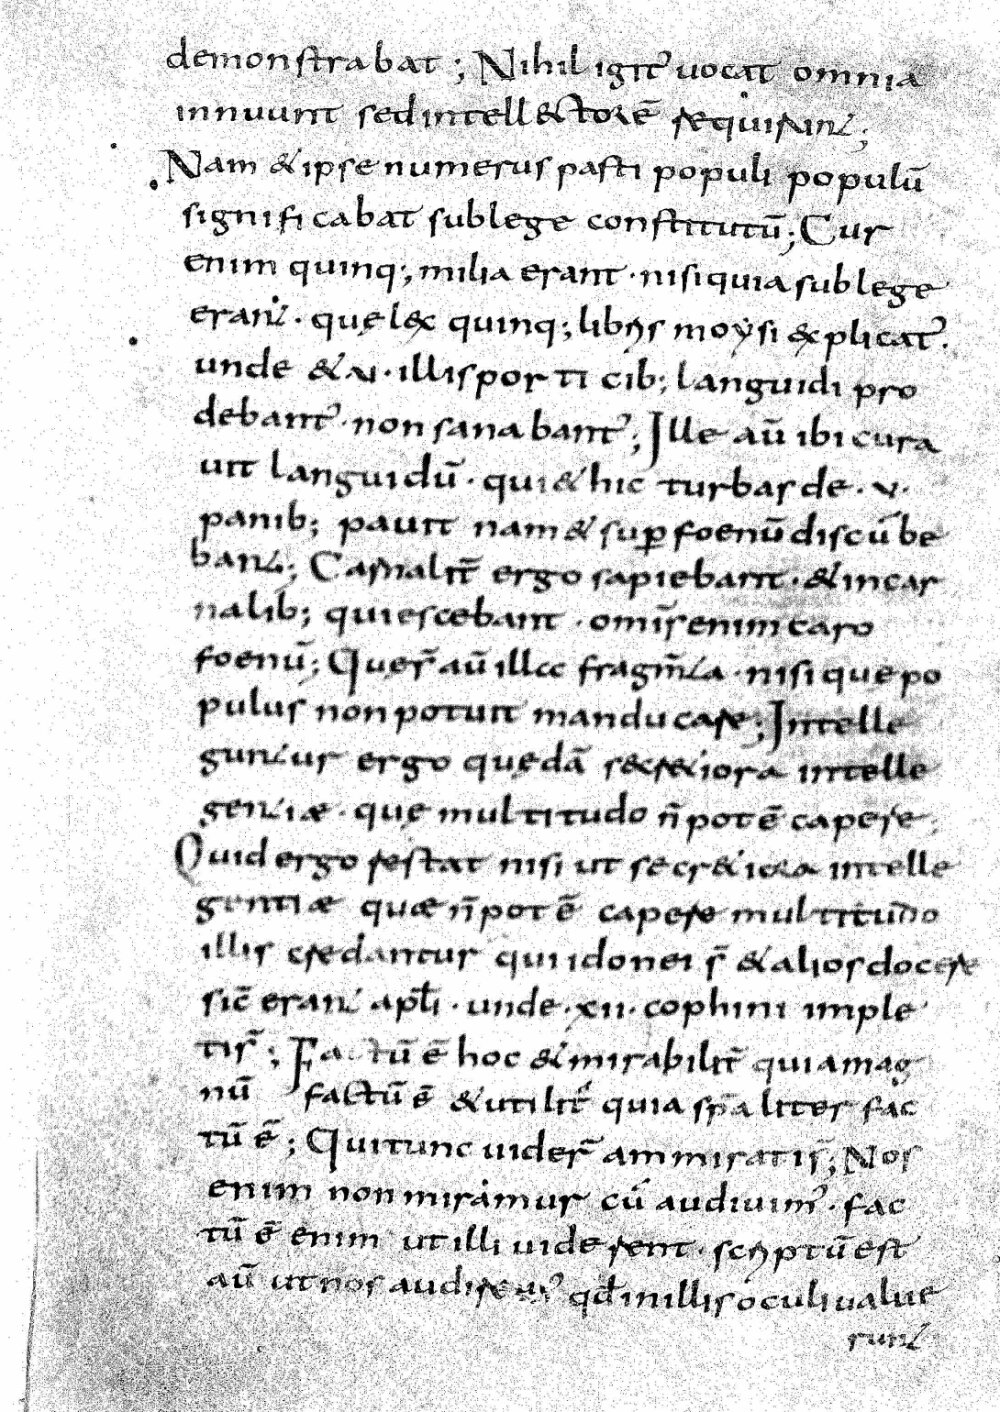 demonstrabat; Nihil igit᷒ uocat omnia
innuunt sed intellectorē requirunt;
Nam & ipse numerus pasti populi populū
significabat sub lege constitutū; Cur
enim quinq; milia erant · nisi quia sub lege
erant · quę lex quinq; libris moẏsi explicat᷒.
unde & v · illis porticib; languidi pro
debant᷒ · non sanabant᷒; Ille aū ibi cura
uit languidū · qui & hic turbas de · v ·
panib; pauit nam & sup̱ foenū discūbe
bant; Carnalit̄ ergo sapiebant · & in car
nalib; quiescebant · omīs enim caro
foenū; Quęs̄ aū illa fragm̄ta · nisi quę po
pulus non potuit manducare; Intelle
guntur ergo quędā secretiora intelle
gentiæ · quę multitudo n̄ potē capere;
Quid ergo restat nisi ut secretiora intelle
gentiæ quæ n̄ potē capere multitudo
illis credantur qui idonei s̄ & alios docere
sic̄ erant apłi · unde · xii · cophini imple
ti s̄; Factū ē hoc & mirabilit̄ quia mag
nū factū ē & utilit̄ quia sp̄aliter fac
tū ē; Qui tunc uider̄ ammirati s̄; Nos
enim non miramur cū audiuim᷒ · fac
tū ē enim ut illi uiderent · scriptū est
aū ut nos audirem᷒ qđ in illis oculi ualue
runt